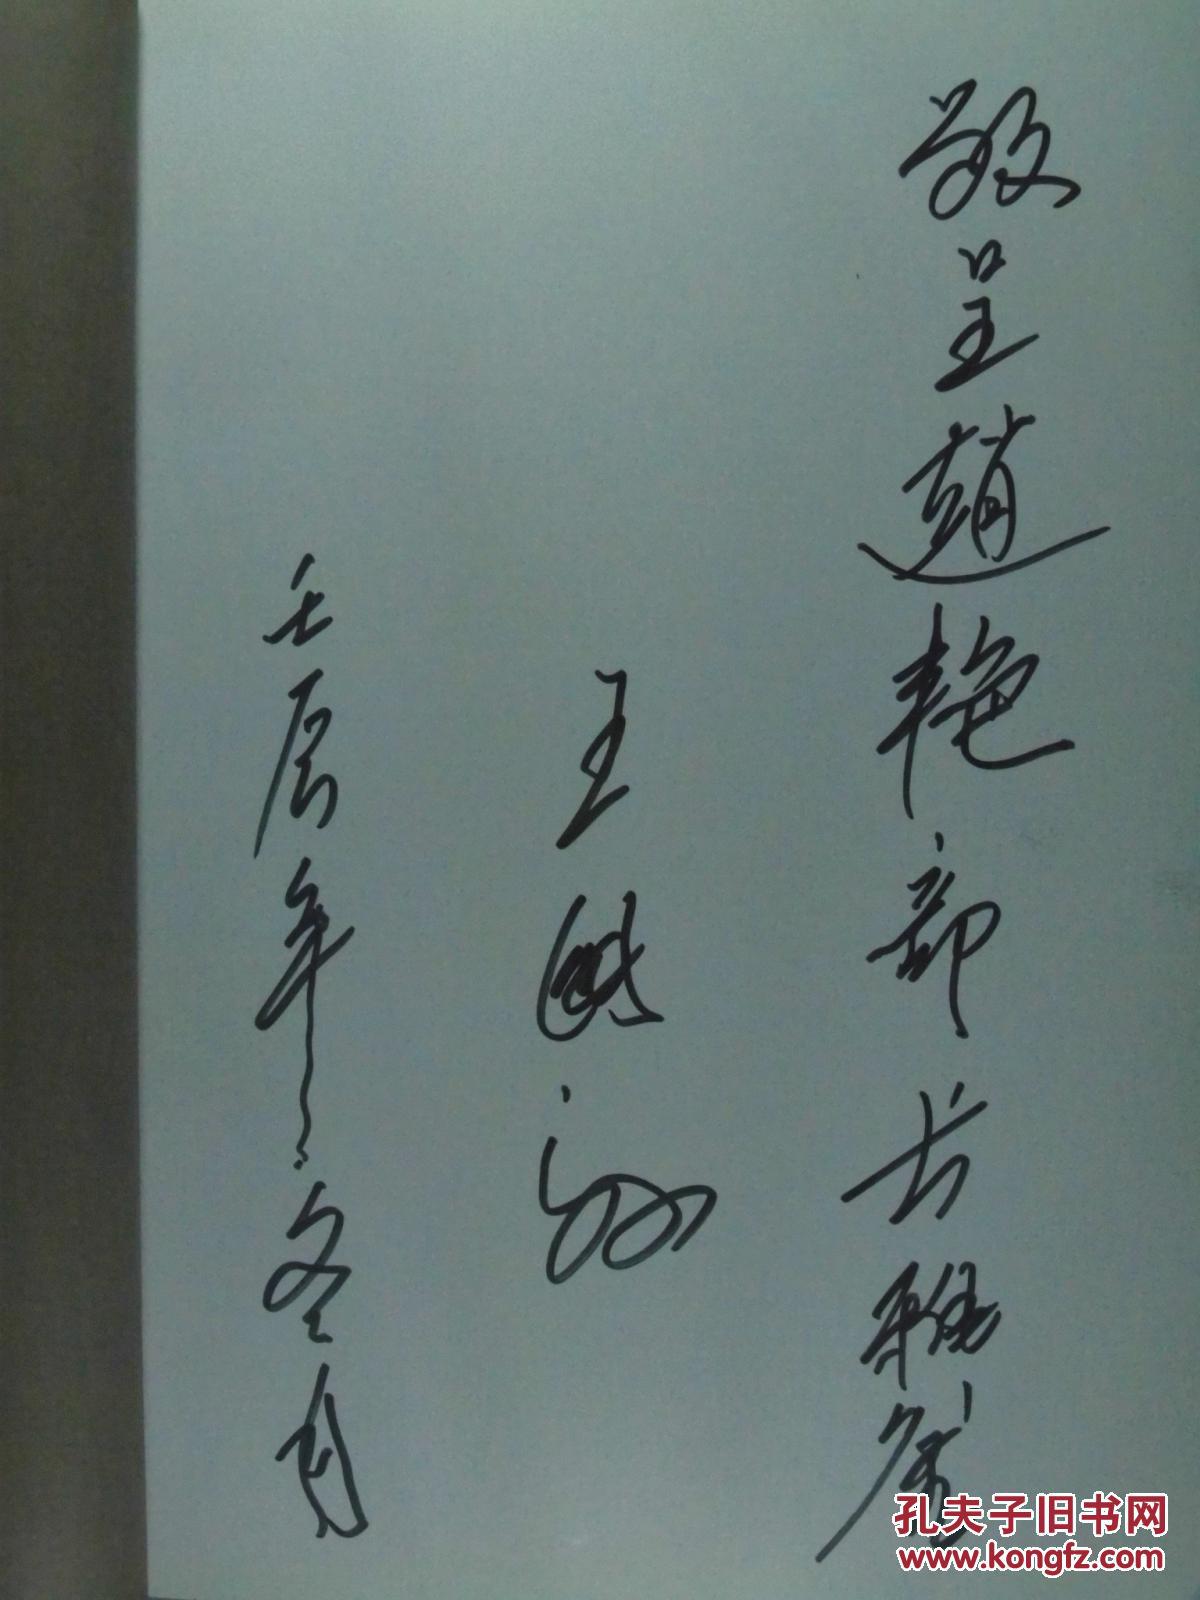 敬呈趙艳部长雅鉴
王
壬辰年冬月
孔夫子旧书网
www.kongfz.com